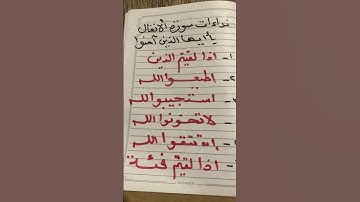 نداءات سورة الأنفال
يأيها الذين آمنوا
١- اذا لقيتم الذين
٢- اطيعوا الله
٣- استجيبوا لله
لا تخونوا الله
إن تتقوا الله
اذا لقيتم فئة